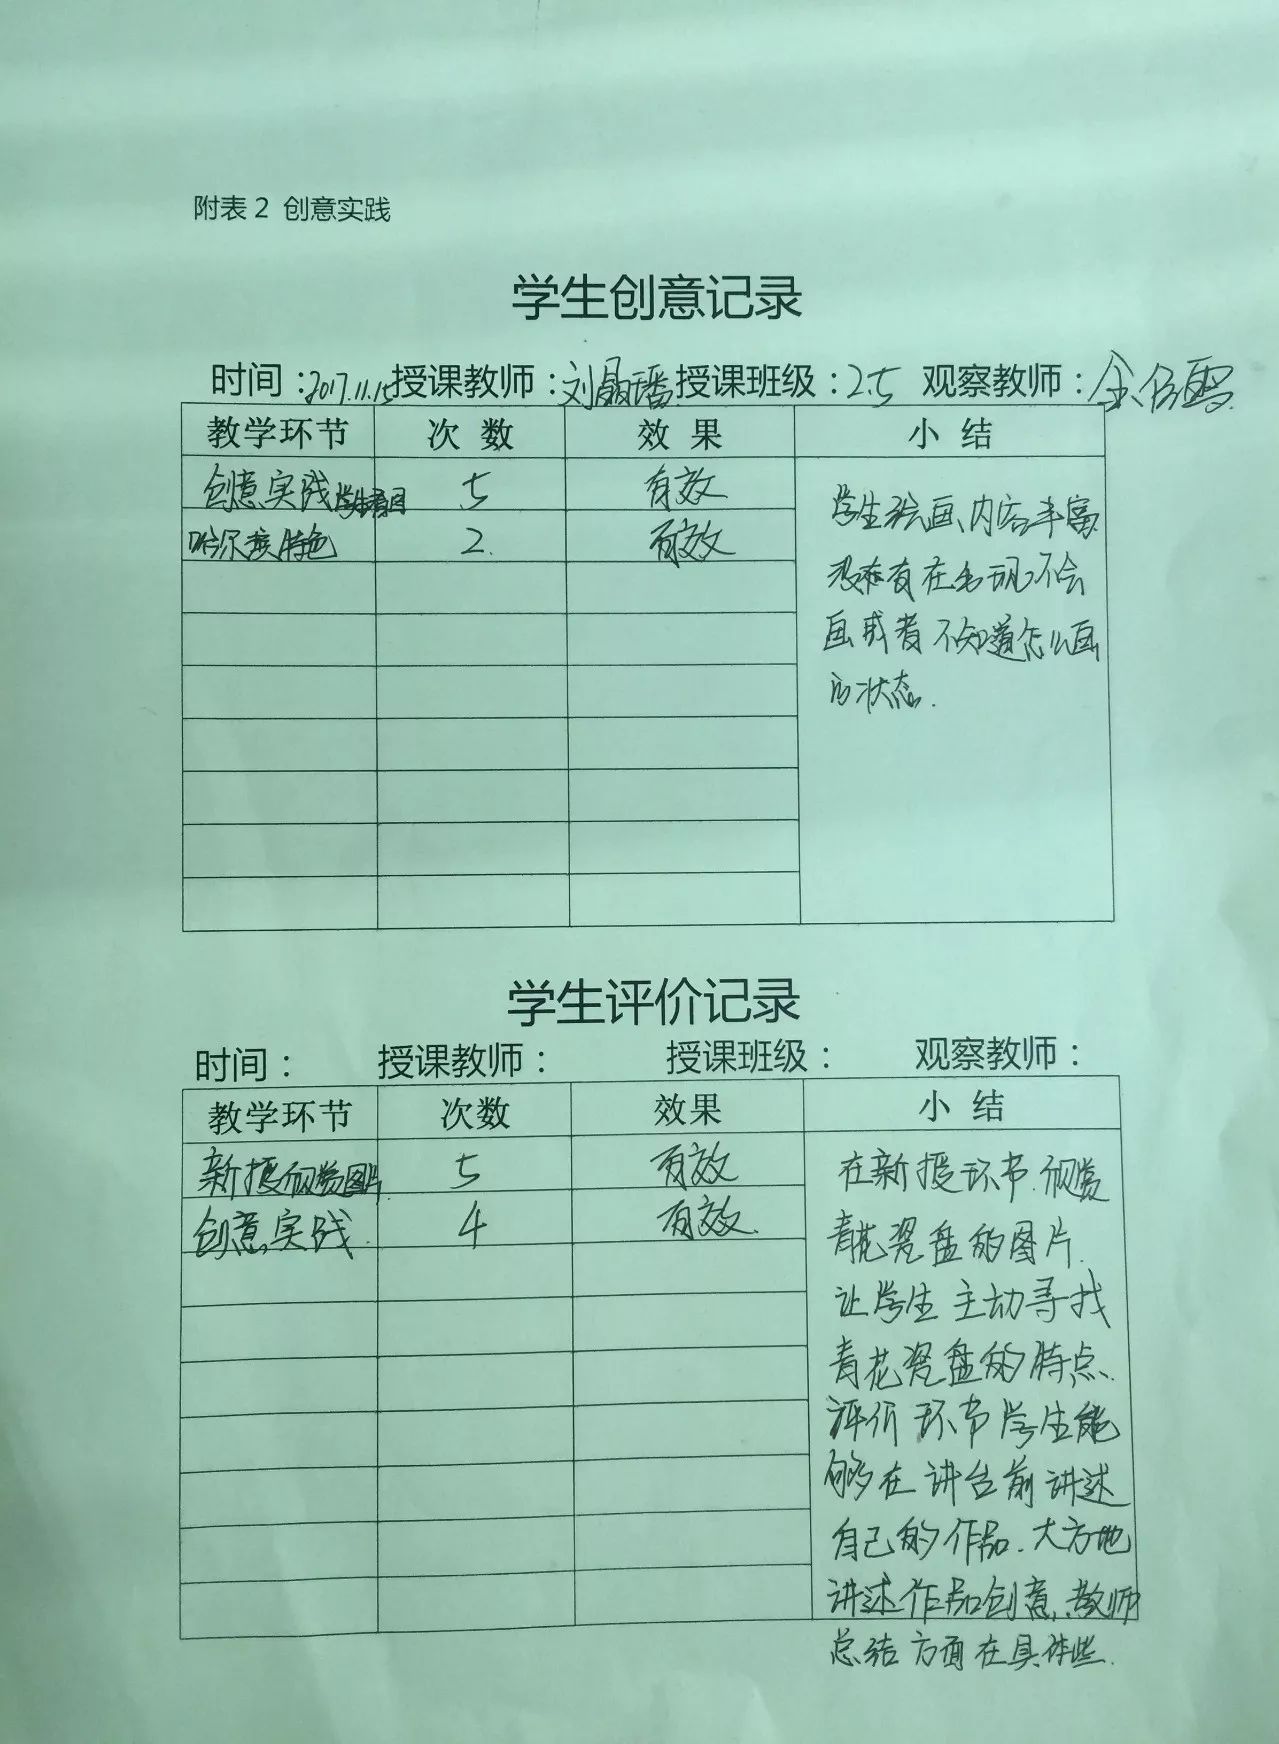 附表2 创意实践
学生创意记录
时间：2017.11.15 授课教师：刘晶璠 授课班级：2.5 观察教师：
教学环节 次数 效果 小结
创意实践 5 有效
哈尔滨特色 2. 有效
学生绘画、内容丰富
没有在出现不会
画或者不知道怎么画
的状态.
学生评价记录
时间： 授课教师： 授课班级： 观察教师：
教学环节 次数 效果 小结
新授欣赏图片 5 有效
创意实践. 4 有效.
在新授环节.欣赏
青花瓷盘的图片.
让学生主动寻找
青花瓷盘的特点、
评价环节学生能
够在讲台前讲述
自己的作品.大方地
讲述作品创意,教师
总结方面在具体些.